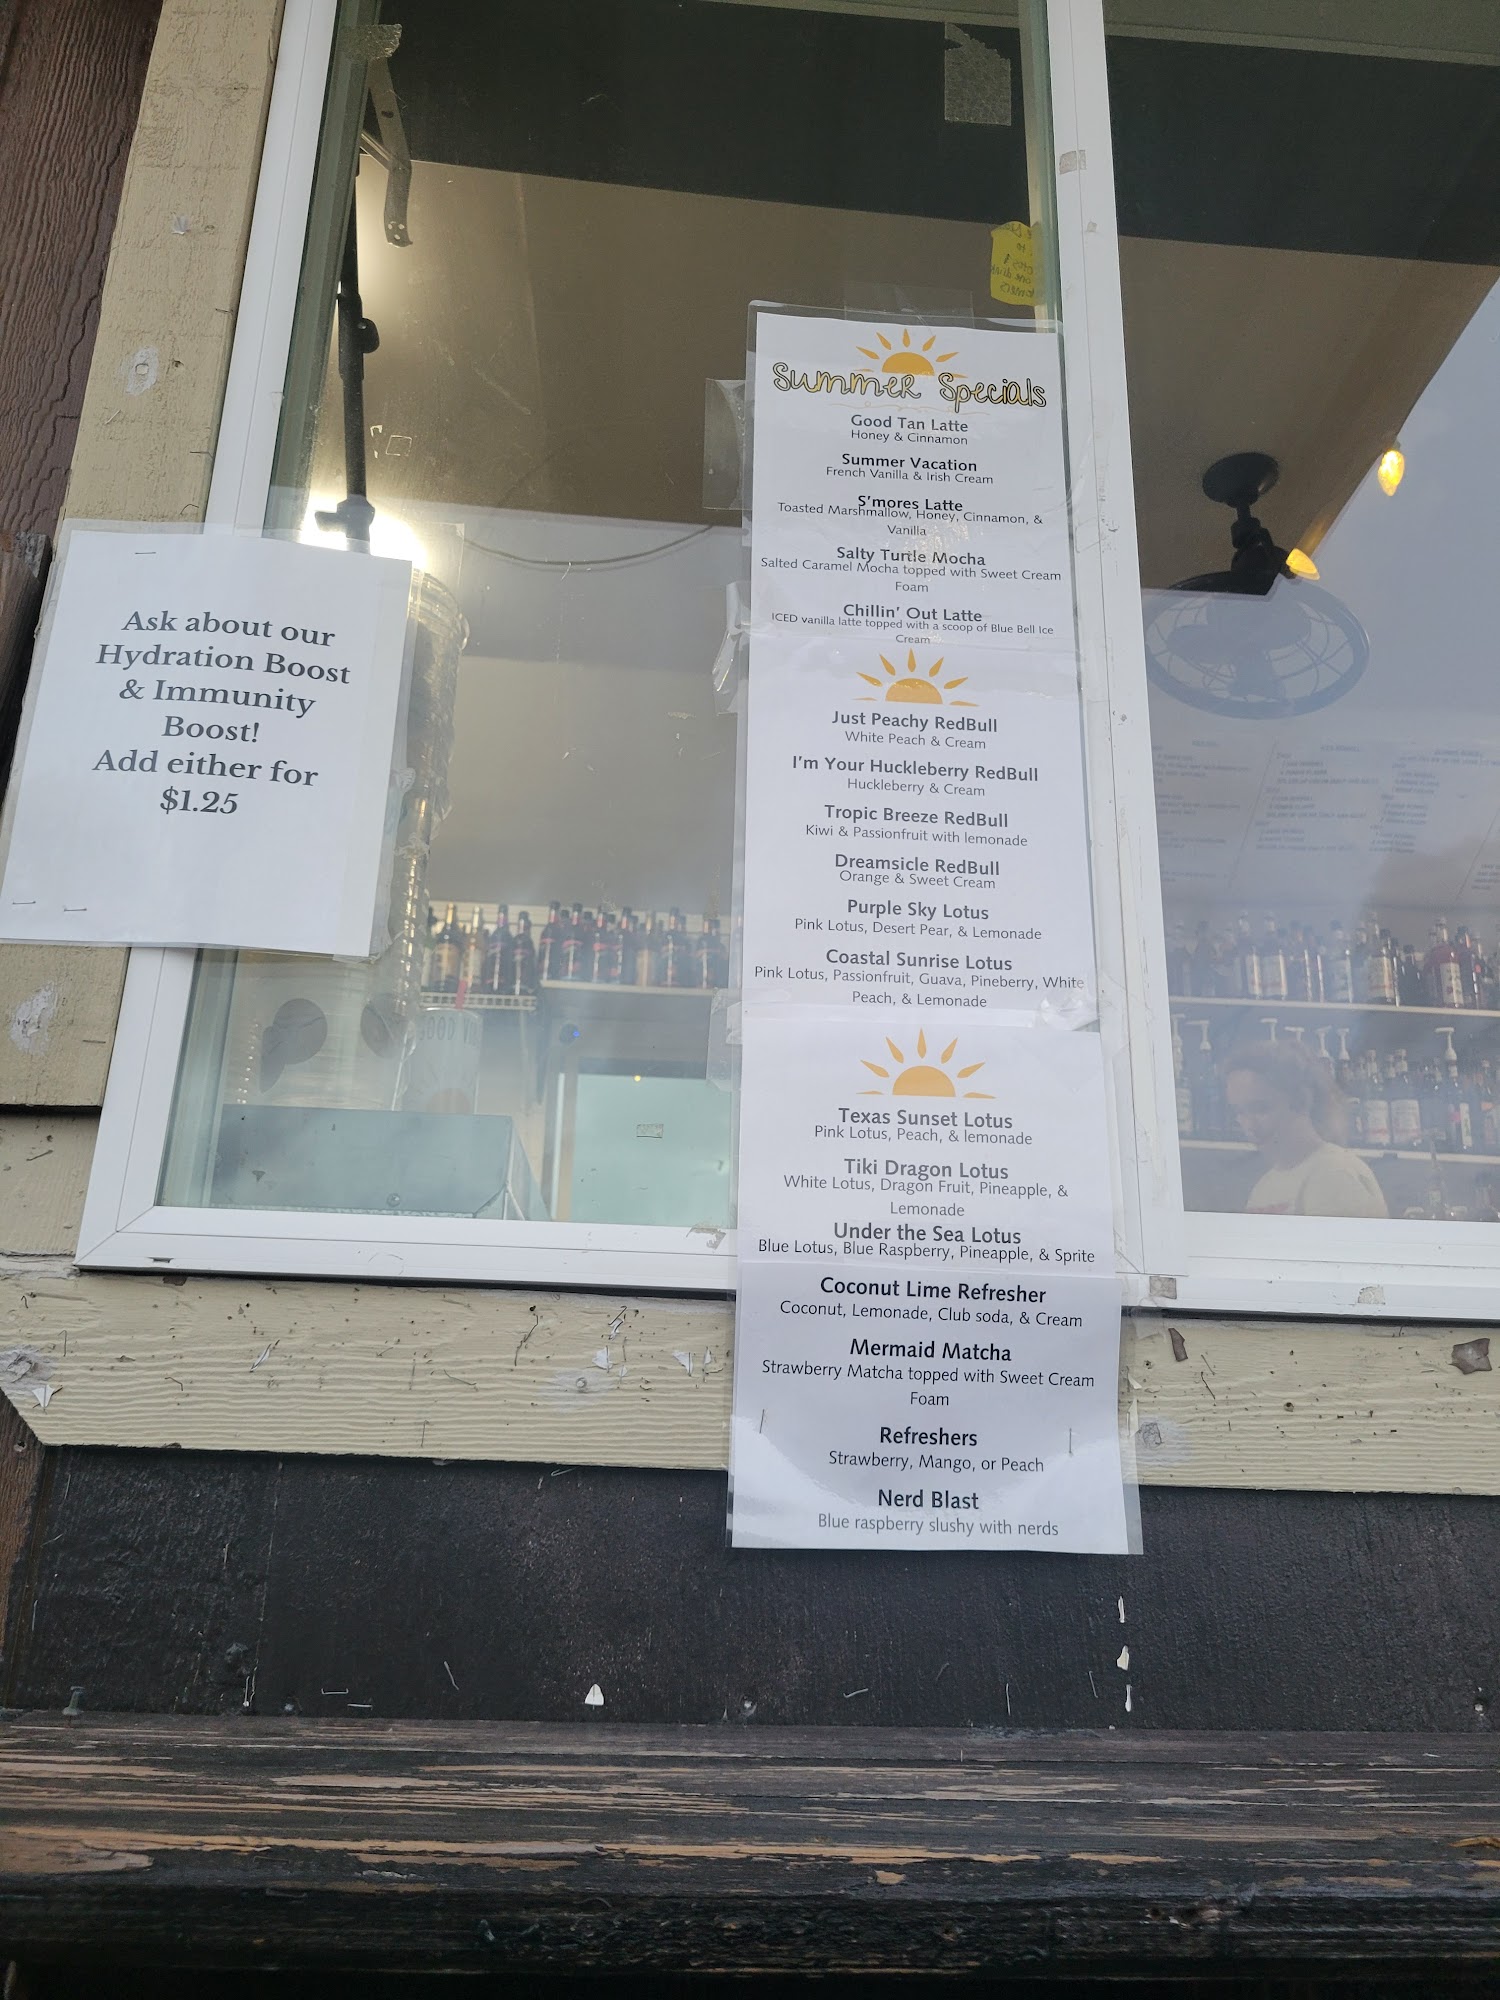 Ask about our
Hydration Boost
& Immunity
Boost!
Add either for
$1.25
Summer Specials
Good Tan Latte
Honey & Cinnamon
Summer Vacation
French Vanilla & Irish Cream
S'mores Latte
Toasted Marshmallow, Honey, Cinnamon, &
Vanilla
Salty Turtle Mocha
Salted Caramel Mocha topped with Sweet Cream
Foam
Chillin' Out Latte
ICED vanilla latte topped with a scoop of Blue Bell Ice
Cream
Just Peachy RedBull
White Peach & Cream
I'm Your Huckleberry RedBull
Huckleberry & Cream
Tropic Breeze RedBull
Kiwi & Passionfruit with lemonade
Dreamsicle RedBull
Orange & Sweet Cream
Purple Sky Lotus
Pink Lotus, Desert Pear, & Lemonade
Coastal Sunrise Lotus
Pink Lotus, Passionfruit, Guava, Pineberry, White
Peach, & Lemonade
Texas Sunset Lotus
Pink Lotus, Peach, & lemonade
Tiki Dragon Lotus
White Lotus, Dragon Fruit, Pineapple, &
Lemonade
Under the Sea Lotus
Blue Lotus, Blue Raspberry, Pineapple, & Sprite
Coconut Lime Refresher
Coconut, Lemonade, Club soda, & Cream
Mermaid Matcha
Strawberry Matcha topped with Sweet Cream
Foam
Refreshers
Strawberry, Mango, or Peach
Nerd Blast
Blue raspberry slushy with nerds